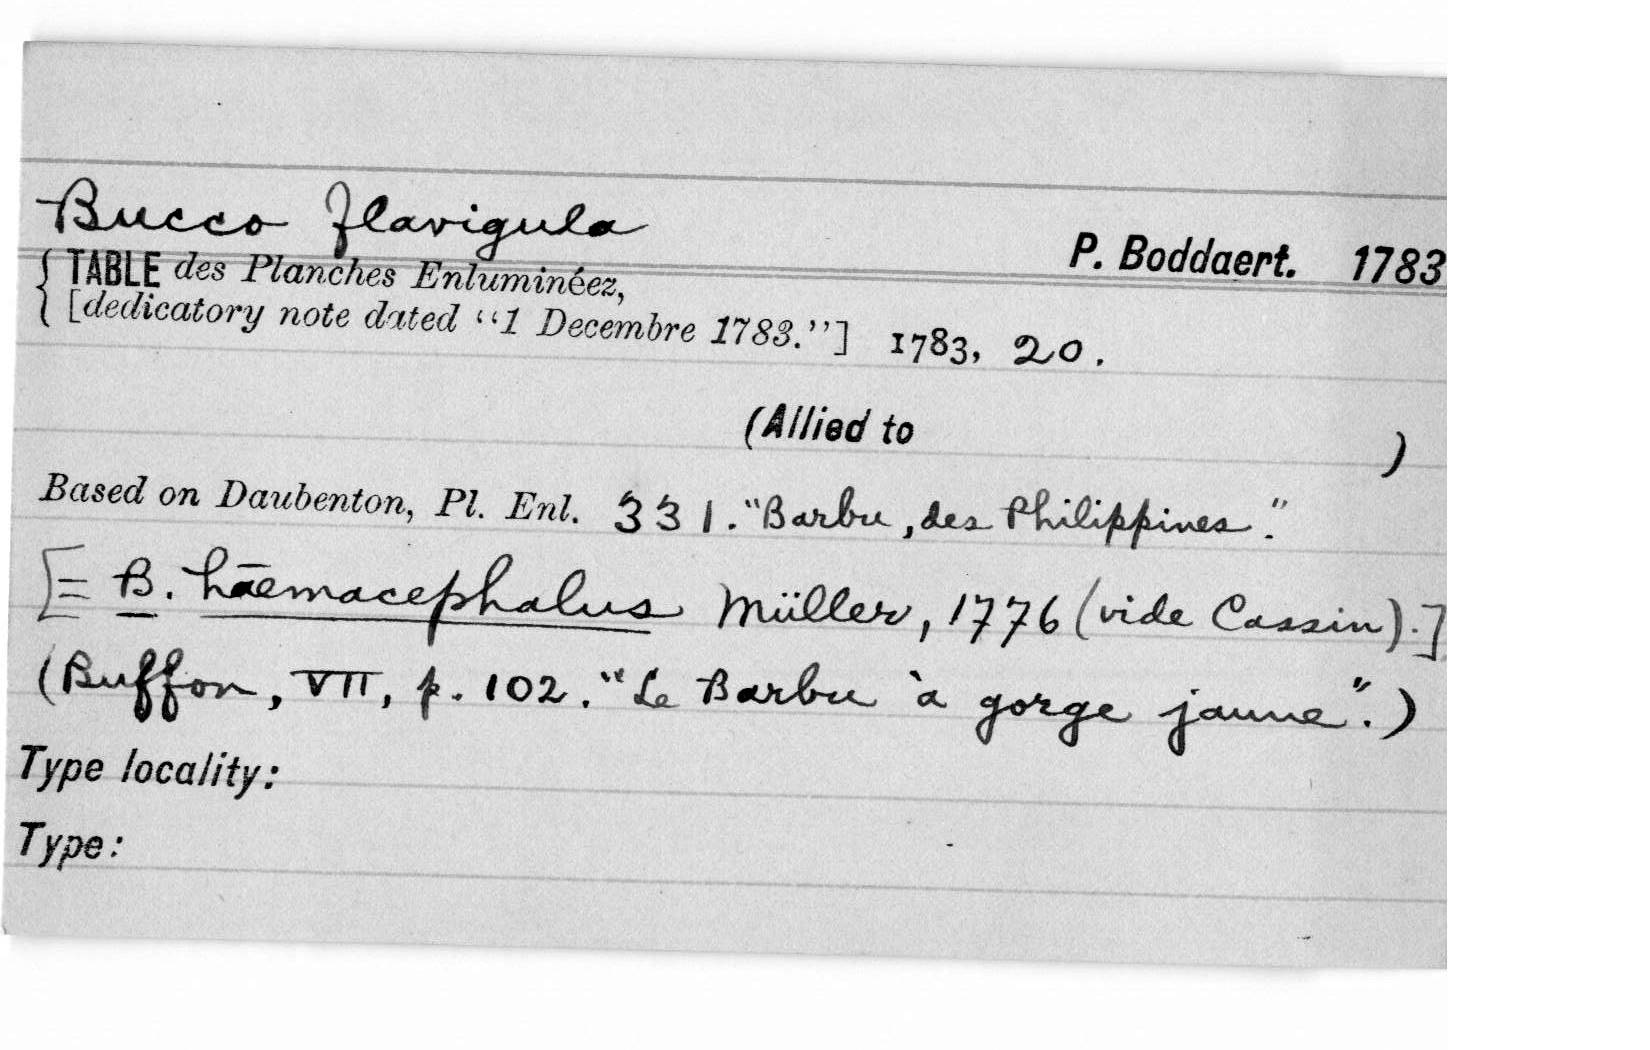 Bucco flavigula
P. Boddaert. 1783
{ TABLE des Planches Enluminéez,
[dedicatory note dated “1 Decembre 1783.”] 1783, 20.
(Allied to )
Based on Daubenton, Pl. Enl. 331. "Barbu, des Philippines."
[= B. hāemacephalus Müller, 1776 (vide Cassin).]
(Buffon, VII, p. 102. "Le Barbu à gorge jaune".)
Type locality:
Type: